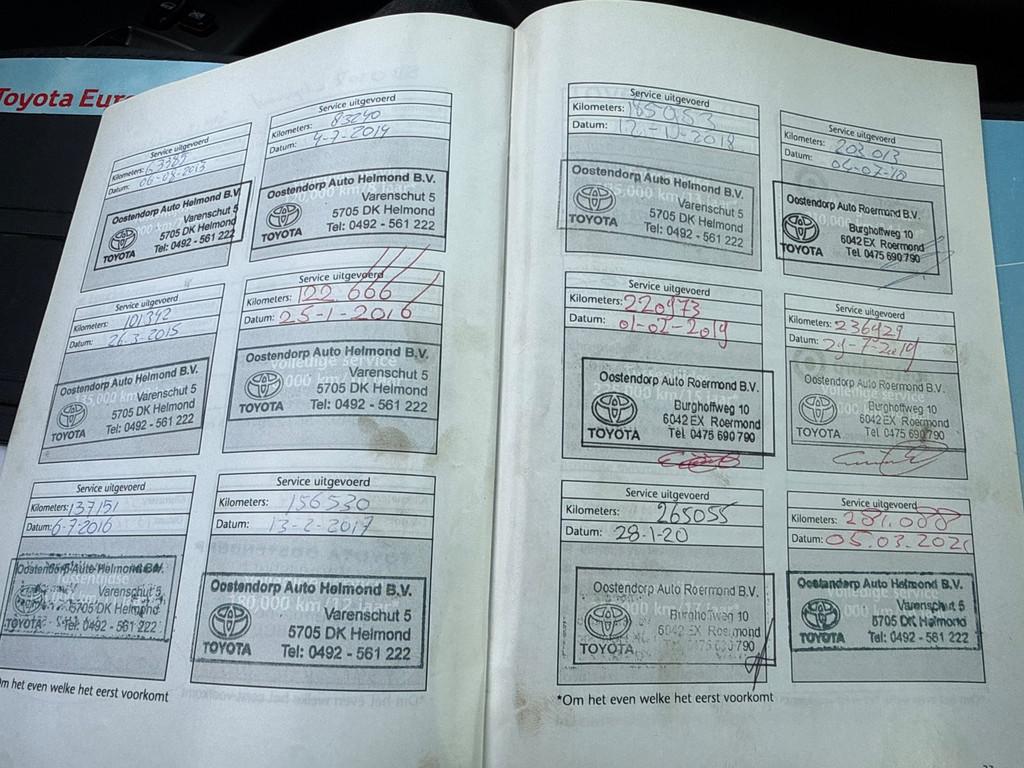 Toyota Eur
Service uitgevoerd
Kilometers: 63385
Datum: 06-08-2013
Oostendorp Auto Helmond B.V.
Varenschut 5
5705 DK Helmond
TOYOTA Tel: 0492 - 561 222
Service uitgevoerd
Kilometers: 83290
Datum: 4-7-2014
Oostendorp Auto Helmond B.V.
Varenschut 5
5705 DK Helmond
TOYOTA Tel: 0492 - 561 222
Service uitgevoerd
Kilometers: 101392
Datum: 26-3-2015
Oostendorp Auto Helmond B.V.
Varenschut 5
5705 DK Helmond
TOYOTA Tel: 0492 - 561 222
Service uitgevoerd
Kilometers: 122 666
Datum: 25-1-2016
Oostendorp Auto Helmond B.V.
Varenschut 5
5705 DK Helmond
TOYOTA Tel: 0492 - 561 222
Service uitgevoerd
Kilometers: 137151
Datum: 6-7-2016
Oostendorp Auto Helmond B.V.
Varenschut 5
5705 DK Helmond
TOYOTA Tel: 0492 - 561 222
Service uitgevoerd
Kilometers: 156530
Datum: 13-2-2017
Oostendorp Auto Helmond B.V.
Varenschut 5
180,000 km/12 jaar*
5705 DK Helmond
TOYOTA Tel: 0492 - 561 222
Om het even welke het eerst voorkomt
Service uitgevoerd
Kilometers: 185053
Datum:
Oostendorp Auto Helmond B.V.
Varenschut 5
5705 DK Helmond
TOYOTA Tel: 0492 - 561 222
Service uitgevoerd
Kilometers: 203 013
Datum: 04-07-18
Oostendorp Auto Roermond B.V.
Burghoffweg 10
6042 EX Roermond
TOYOTA Tel. 0475 690 790
Service uitgevoerd
Kilometers: 220973
Datum: 01-02-2019
Oostendorp Auto Roermond B.V.
Burghoffweg 10
6042 EX Roermond
TOYOTA Tel. 0475 690 790
Service uitgevoerd
Kilometers: 236929
Datum: 29-7-2019
Oostendorp Auto Roermond B.V.
volledige service
Burghoffweg 10
6042 EX Roermond
TOYOTA Tel. 0475 690 790
Service uitgevoerd
Kilometers: 265055
Datum: 28-1-20
Oostendorp Auto Roermond B.V.
Burghoffweg 10
6042 EX Roermond
TOYOTA Tel. 0475 690 790
Service uitgevoerd
Kilometers: 281.088
Datum: 05.03.2021
Oostendorp Auto Helmond B.V.
Varenschut 5
5705 DK Helmond
TOYOTA Tel: 0492 - 561 222
*Om het even welke het eerst voorkomt